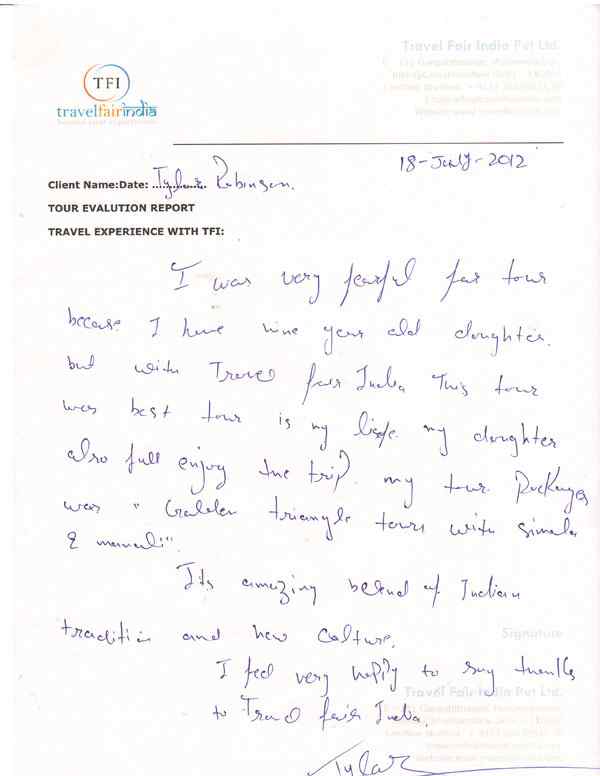 Travel Fair India Pvt Ltd.
TFI
travelfairindia
18-July-2012
Client Name:Date: .............. Tylar Robinson.
TOUR EVALUTION REPORT
TRAVEL EXPERIENCE WITH TFI:
I was very fearful for tour
becose I have nine year old doughter.
but with Travel fair India This tour
was best tour is my life. my doughter
also full enjoy the trip. my tour Package
was "Golden triangle tours with simala
& manali".
Its amazing belend of Indian
tradition and new Culture.
Signature
I feel very happy to say thanks
Travel Fair India Pvt Ltd.
to Travel fair India.
Tylar